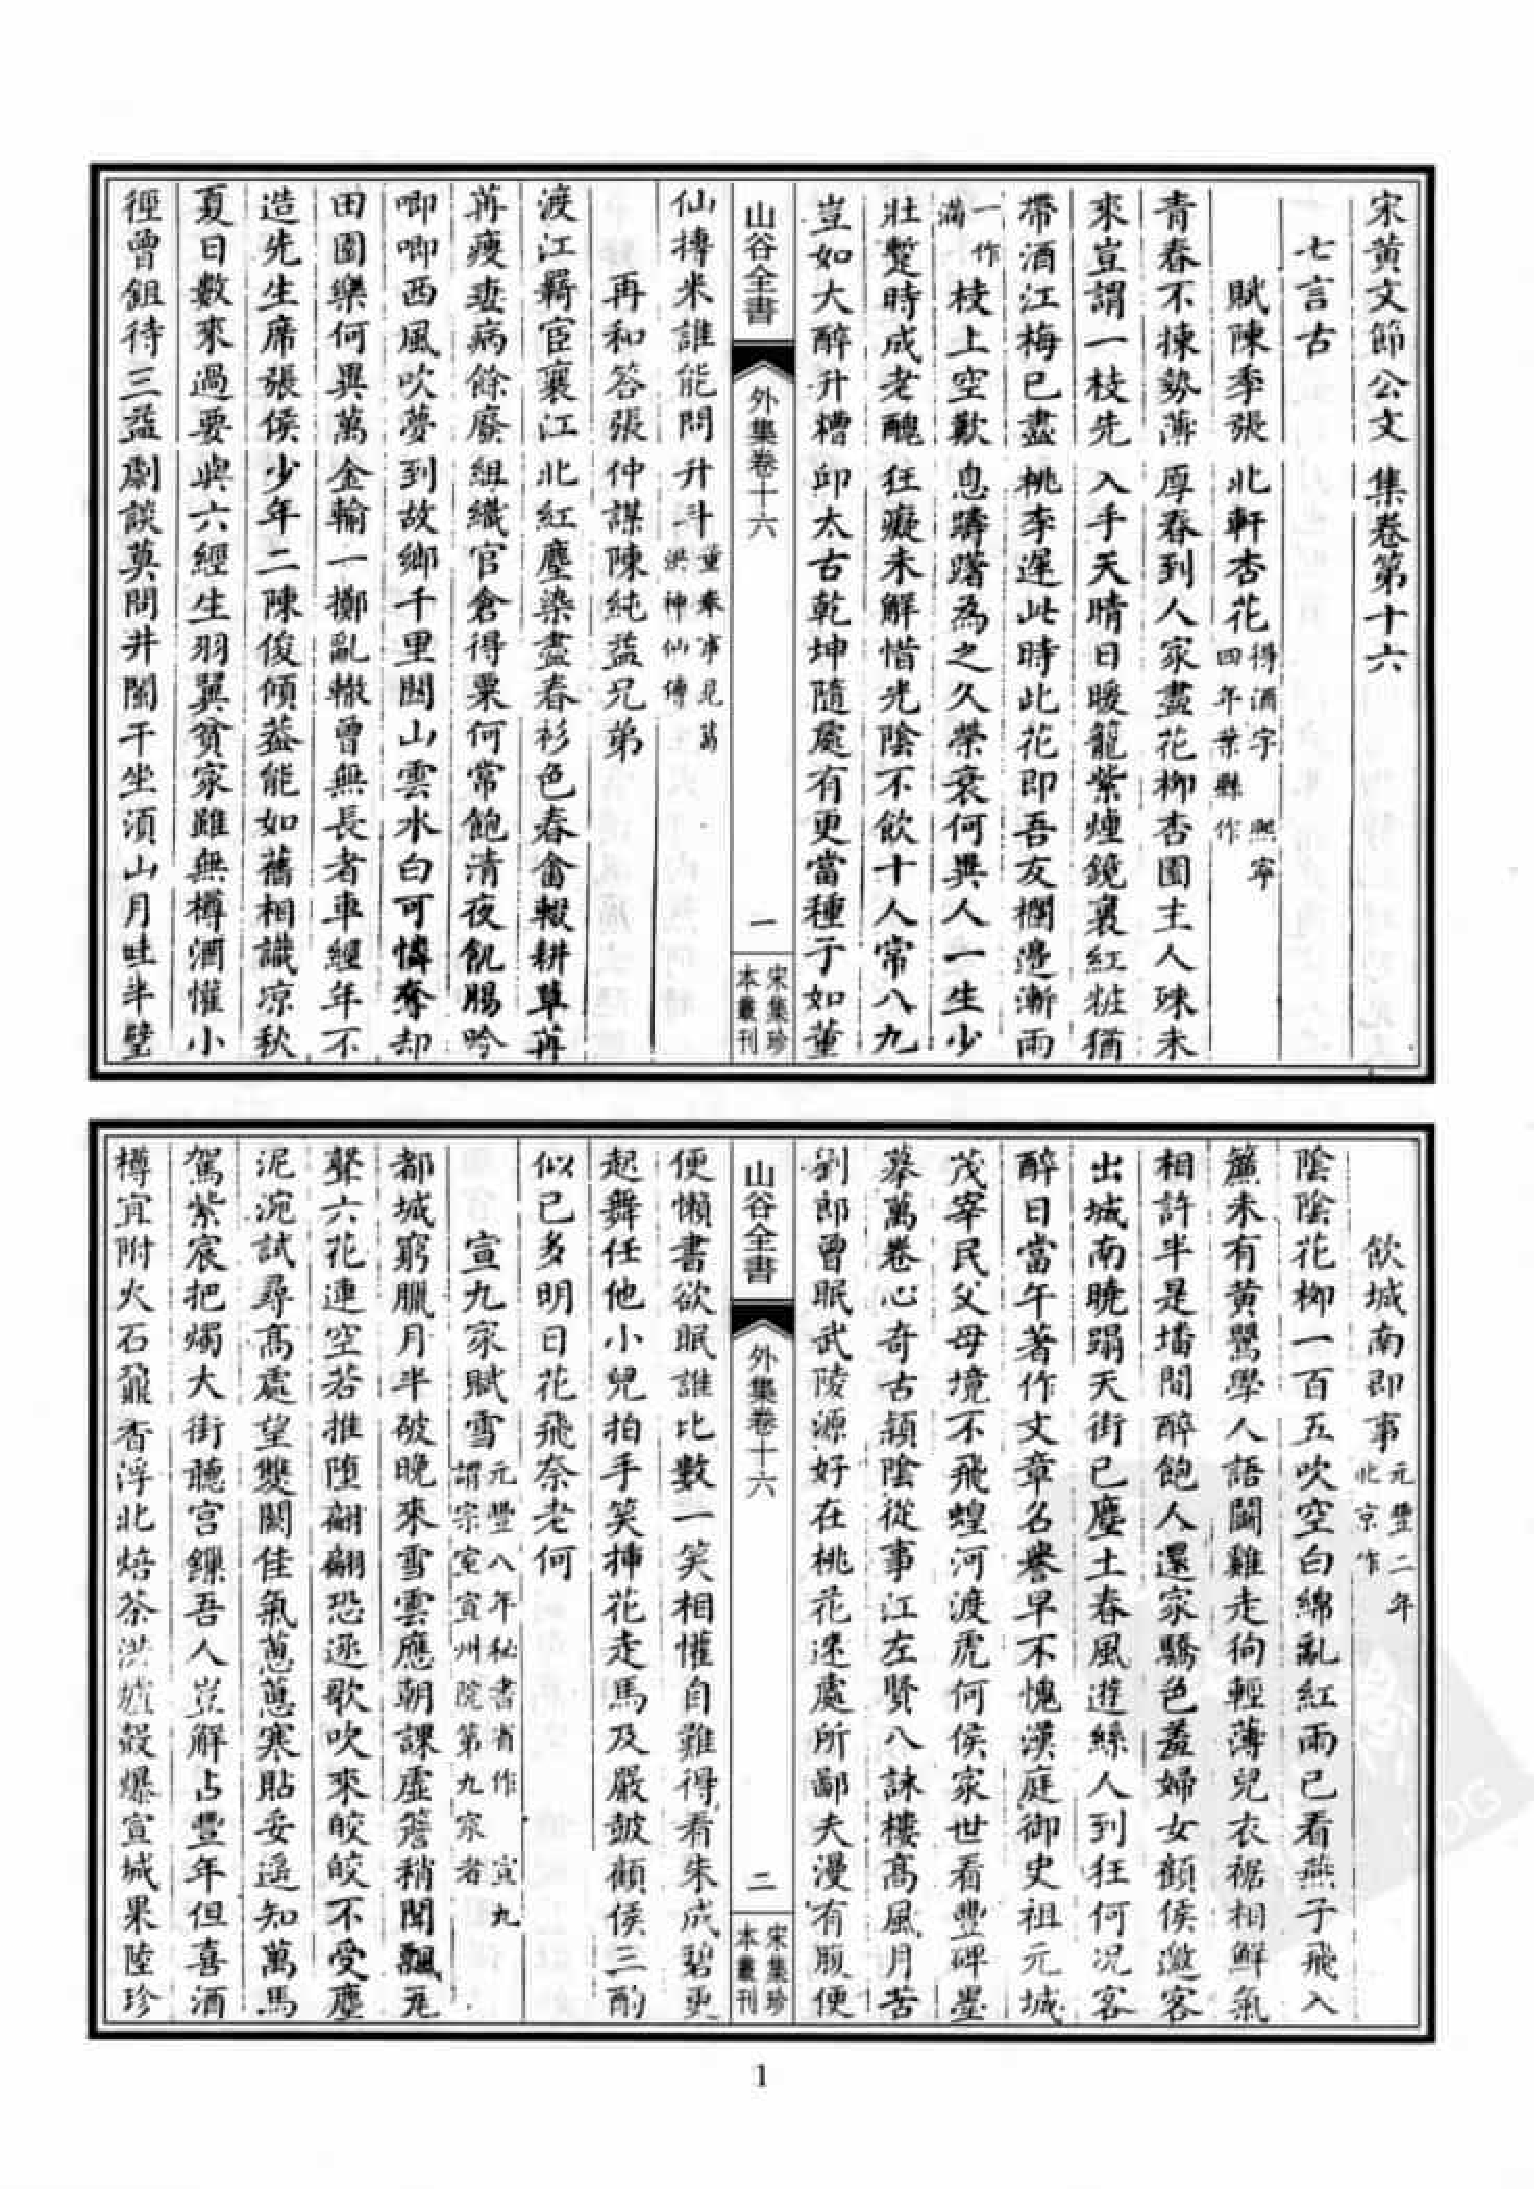 宋黃文節公文集卷第十六
七言古
賦陳季張北軒杏花得酒字 熙寧四年葉縣作
青春不揀勢薄厚春到人家盡花柳杏園主人殊未
來豈謂一枝先入手天晴日暖籠紫煙鏡裏紅粧猶
帶酒江梅已盡桃李遲此時此花即吾友欄邊漸雨
一作滿枝上空歎息躊躇為之久榮衰何異人一生少
壯蹔時成老醜狂癡未解惜光陰不飲十人常八九
豈如大醉升糟邱太古乾坤隨處有更當種子如董
山谷全書
外集卷十六
一
宋集珍本叢刊
仙摶米誰能問升斗董奉事見葛洪神仙傳
再和答張仲謀陳純益兄弟
渡江羇宦襄江北紅塵染盡春衫色春畬輟耕草苒
苒瘦妻病餘廢組織官倉得粟何常飽清夜飢腸吟
唧唧西風吹夢到故鄉千里關山雲水白可憐奪却
田園樂何異萬金輸一擲亂轍曾無長者車經年不
造先生席張侯少年二陳俊傾葢能如舊相識凉秋
夏日數來過要與六經生羽翼貧家雖無樽酒懽小
徑曾鉏待三益劇談莫問井闌干坐須山月吐半璧
飲城南即事元豐二年北京作
陰陰花柳一百五吹空白綿亂紅雨已看燕子飛入
簾未有黃鸎學人語鬭雞走狗輕薄兒衣裾相鮮氣
相許半是墦間醉飽人還家驕色羞婦女顧侯邀客
出城南曉蹋天街已塵土春風遊絲人到狂何况客
醉日當午著作文章名譽早不愧漢庭御史祖元城
茂宰民父母境不飛蝗河渡虎何侯家世看豐碑墨
摹萬卷心奇古潁陰從事江左賢八詠樓高風月苦
劉郎曾眠武陵源好在桃花迷處所鄙夫漫有腹便
山谷全書
外集卷十六
二
宋集珍本叢刊
便懶書欲眠誰比數一笑相懽自難得看朱成碧更
起舞任他小兒拍手笑揷花走馬及嚴皷顧侯三酌
似已多明日花飛奈老何
宣九家賦雪元豐八年秘書省作 宣九謂宗室宣州院第九家者
都城窮臘月半破晚來雪雲應朝課虛簷稍聞飄瓦
聲六花連空若推墮翩翩恐逐歌吹來皎皎不受塵
泥涴試尋高處望雙闕佳氣蔥蔥寒貼妥遥知萬馬
駕紫宸把燭大街聽宮鏁吾人豈解占豐年但喜酒
樽宜附火石鼐香浮北焙茶洪爐殼爆宣城果陸珍
1